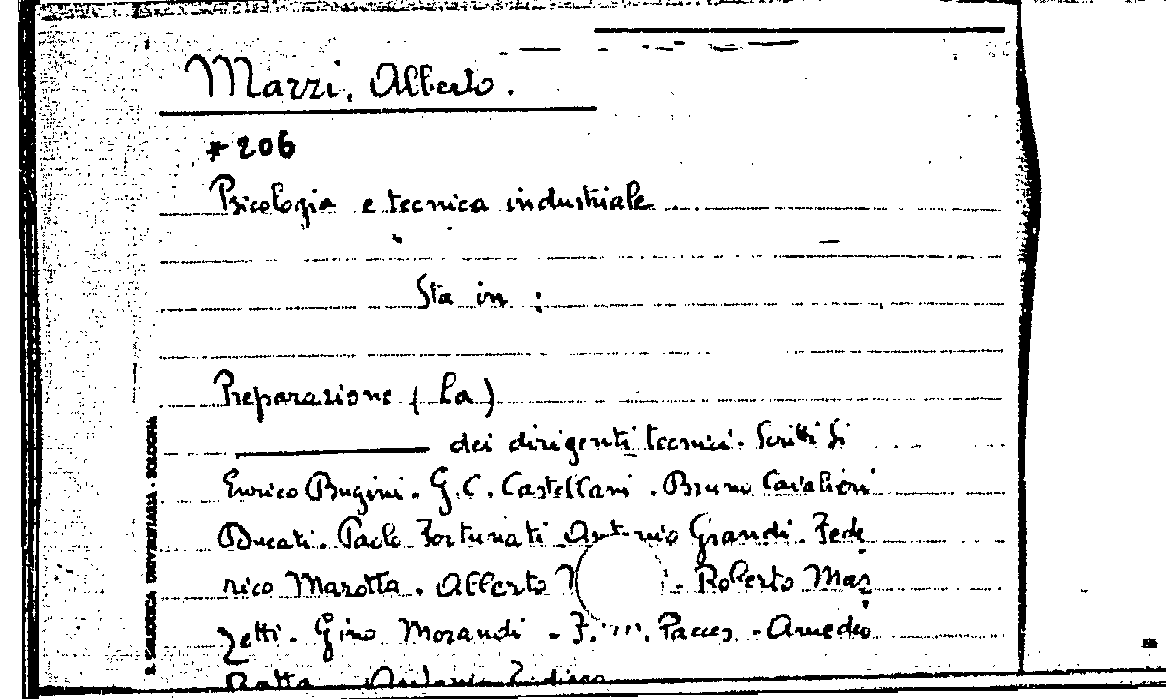 Marzi, Alberto.
* 206
Psicologia e tecnica industriale
Sta in :
Preparazione (La)
dei dirigenti tecnici. Scritti di
Enrico Bugini. G.C. Castellani. Bruno Cavalieri
Ducati. Paolo Fortunati Antonio Grandi. Fede
rico Marotta. Alberto - Roberto Maz
zetti. Gino Morandi - F. M. Pacces - Amedeo
Ratta
R. BIBLIOTECA UNIVERSITARIA - BOLOGNA